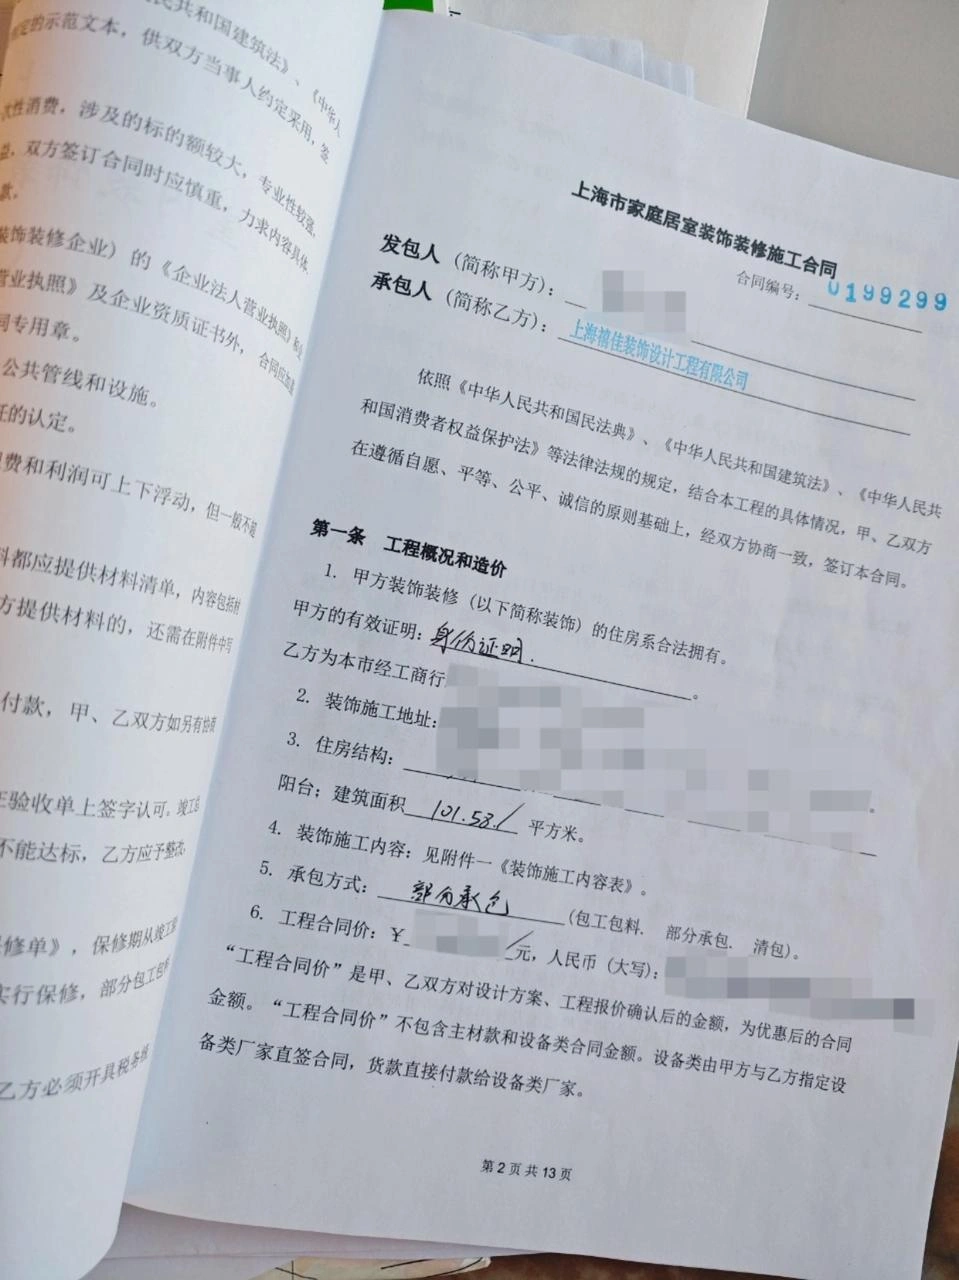 民共和国建筑法》、《中华人
定的示范文本，供双方当事人约定采用，签
次性消费，涉及的标的额较大，专业性较强，
益，双方签订合同时应慎重，力求内容具体、
款。
装饰装修企业）的《企业法人营业执照》和
营业执照》及企业资质证书外，合同应加盖
同专用章。
公共管线和设施。
任的认定。
费和利润可上下浮动，但一般不超
料都应提供材料清单，内容包括材
方提供材料的，还需在附件中写
付款，甲、乙双方如另有协商
在验收单上签字认可。竣工后
不能达标，乙方应予整改，
修单》，保修期从竣工验
实行保修，部分包工包料
乙方必须开具税务统
上海市家庭居室装饰装修施工合同
合同编号：0199299
发包人（简称甲方）：
承包人（简称乙方）：上海禧佳装饰设计工程有限公司
依照《中华人民共和国民法典》、《中华人民共和国建筑法》、《中华人民共
和国消费者权益保护法》等法律法规的规定，结合本工程的具体情况，甲、乙双方
在遵循自愿、平等、公平、诚信的原则基础上，经双方协商一致，签订本合同。
第一条 工程概况和造价
1. 甲方装饰装修（以下简称装饰）的住房系合法拥有。
甲方的有效证明：身份证明.。
乙方为本市经工商行
2. 装饰施工地址：
3. 住房结构：
阳台；建筑面积 101.58 / 平方米。
4. 装饰施工内容：见附件一《装饰施工内容表》。
5. 承包方式：部分承包（包工包料. 部分承包. 清包）。
6. 工程合同价：¥ / 元，人民币（大写）：
“工程合同价”是甲、乙双方对设计方案、工程报价确认后的金额，为优惠后的合同
金额。“工程合同价”不包含主材款和设备类合同金额。设备类由甲方与乙方指定设
备类厂家直签合同，货款直接付款给设备类厂家。
第 2 页 共 13 页